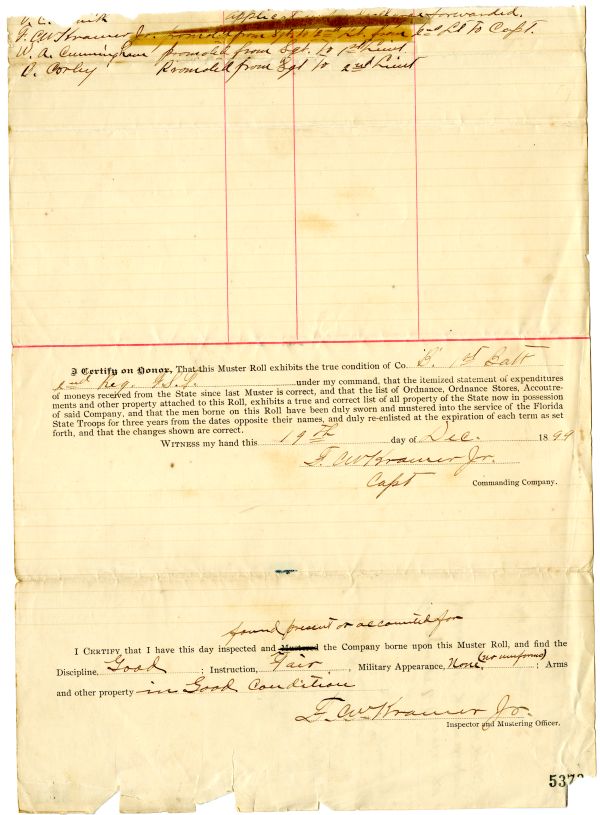 forwarded.
F. C. W. Kramer Jr. promoted from Sgt to 2nd Lt. from 2nd Lt to Capt.
W. A. Cunningham promoted from Sgt. to 1st Lieut
D. Corley Promoted from Sgt to 2nd Lieut
I Certify on Honor, That this Muster Roll exhibits the true condition of Co. "B" 1st Batt
2nd Reg. F.S.T. under my command, that the itemized statement of expenditures
of moneys received from the State since last Muster is correct, and that the list of Ordnance, Ordnance Stores, Accoutre-
ments and other property attached to this Roll, exhibits a true and correct list of all property of the State now in possession
of said Company, and that the men borne on this Roll have been duly sworn and mustered into the service of the Florida
State Troops for three years from the dates opposite their names, and duly re-enlisted at the expiration of each term as set
forth, and that the changes shown are correct.
WITNESS my hand this 19th day of Dec. 1899
F. C. W. Kramer Jr.
Capt Commanding Company.
found present or accounted for
I CERTIFY that I have this day inspected and Mustered the Company borne upon this Muster Roll, and find the
Discipline, Good ; Instruction, Fair , Military Appearance, None (no uniforms) ; Arms
and other property in Good Condition
F. C. W. Kramer Jr.
Inspector and Mustering Officer.